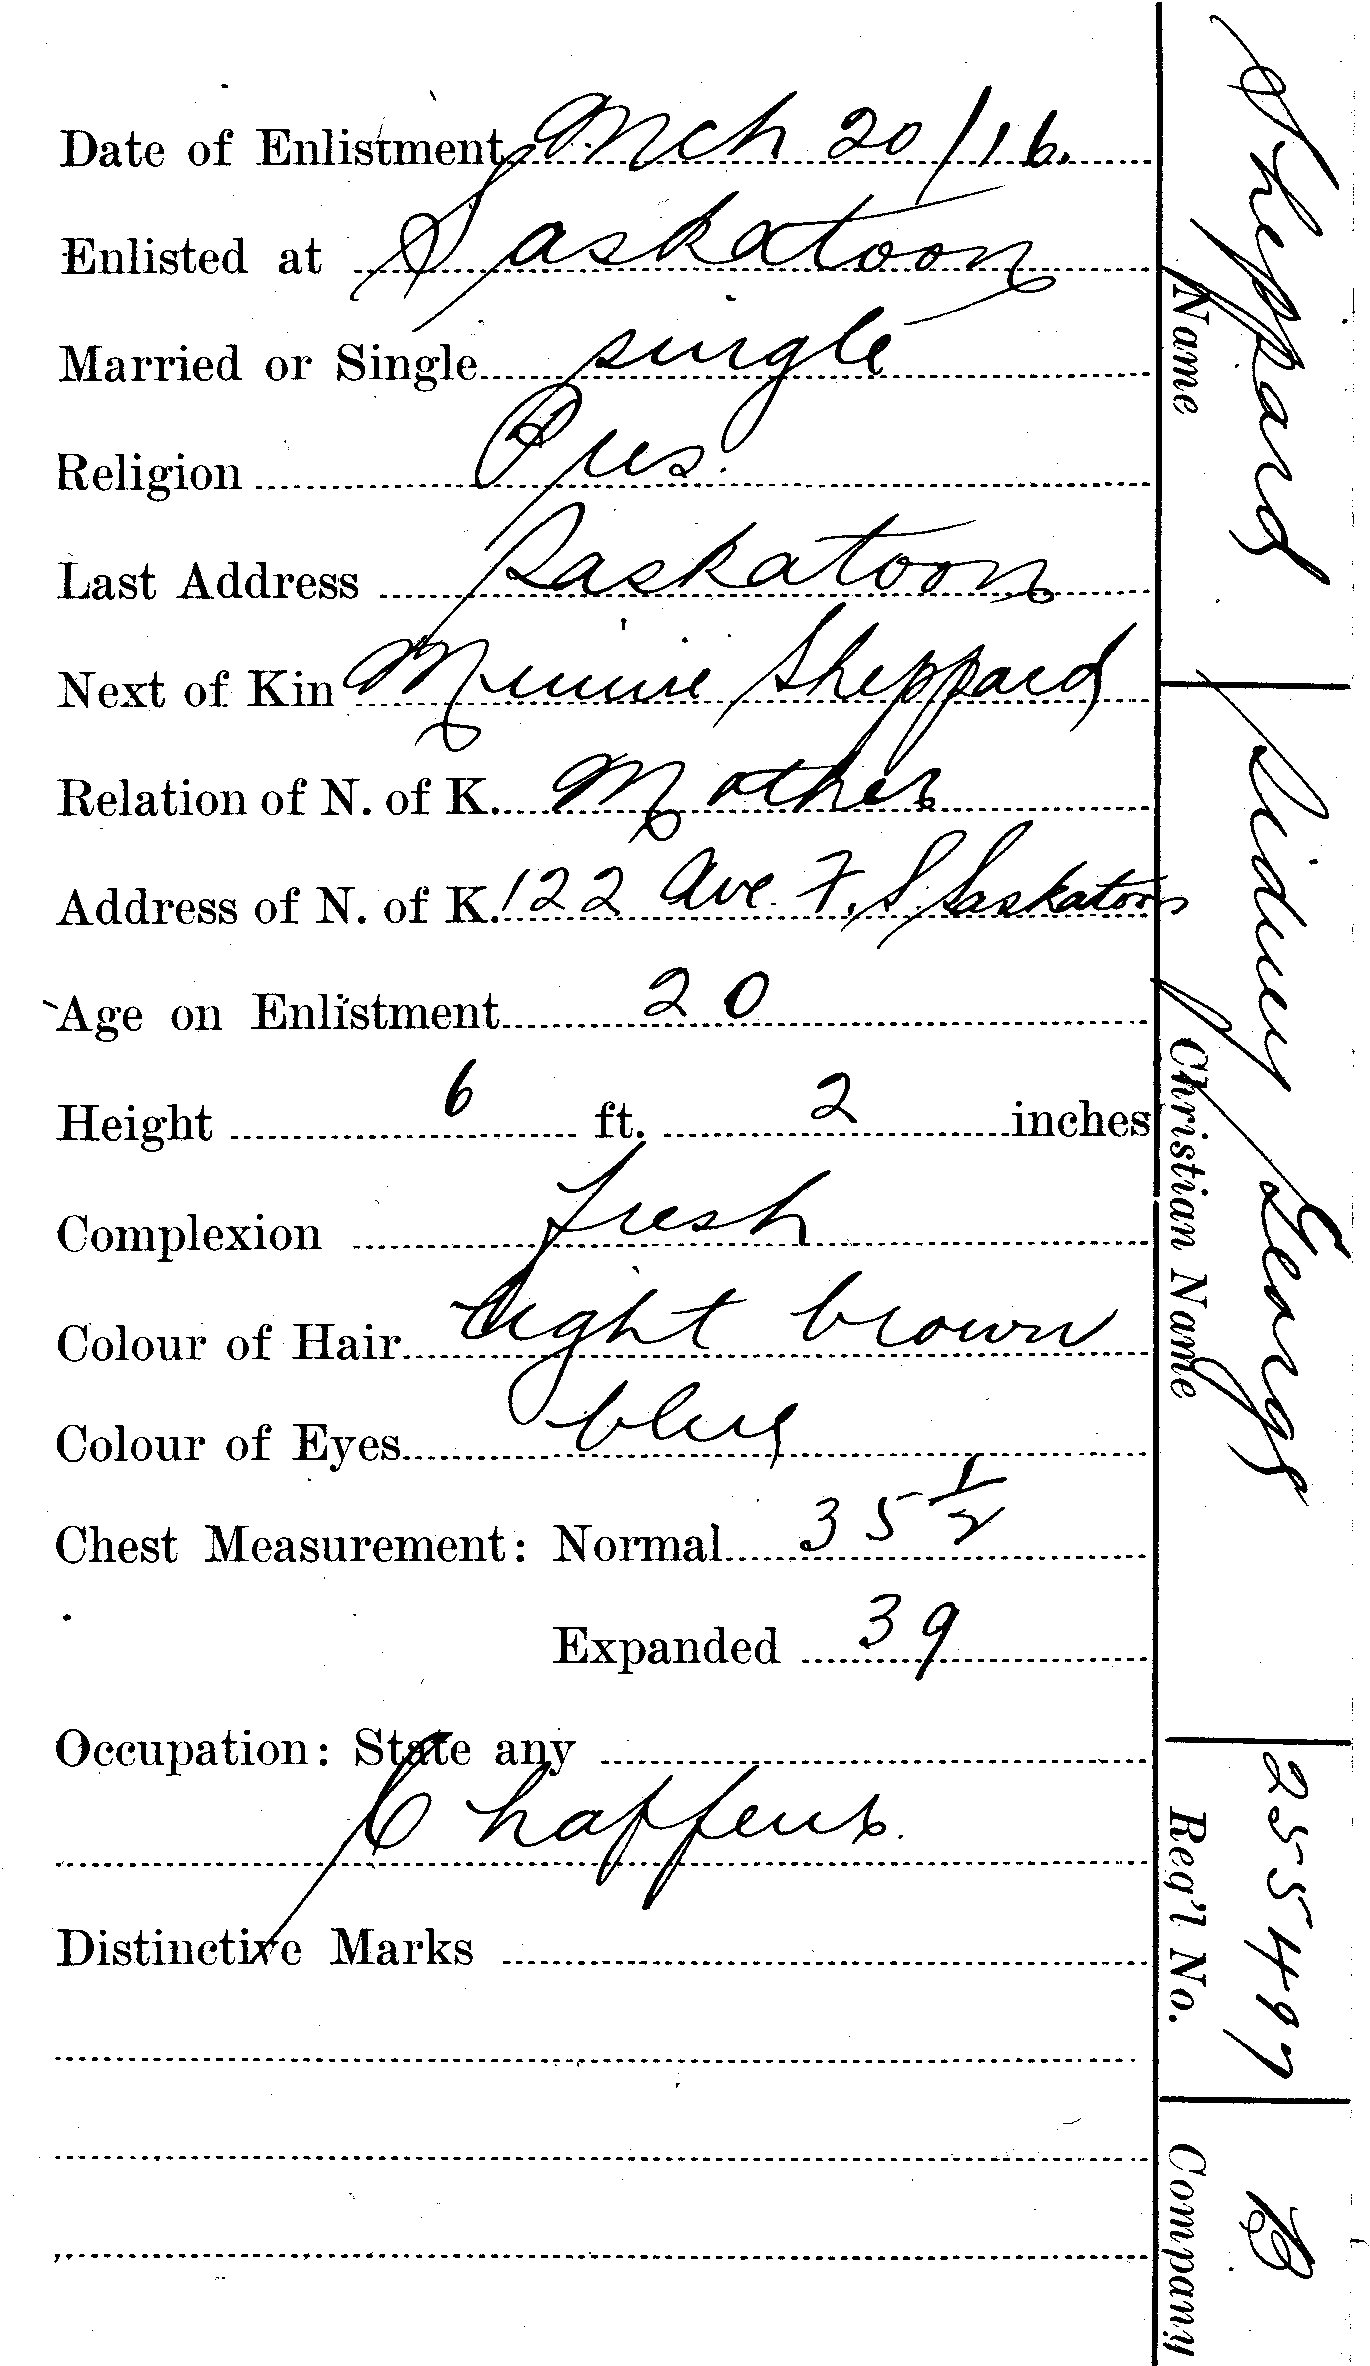 Date of Enlistment Mch 20/16.
Enlisted at Saskatoon
Married or Single single
Religion Pres.
Last Address Saskatoon
Next of Kin Minnie Sheppard
Relation of N. of K. Mother
Address of N. of K. 122 Ave. F. S. Saskatoon
Age on Enlistment 20
Height 6 ft. 2 inches
Complexion fresh
Colour of Hair light brown
Colour of Eyes blue
Chest Measurement: Normal 35 1/2
Expanded 39
Occupation: State any
Chaffeur.
Distinctive Marks
Sheppard Sidney George 255497 B
Name Christian Name Reg'l No. Company